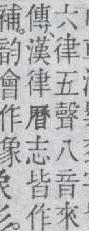 六律五聲八音來
傳漢律曆志皆作
補韵會作象